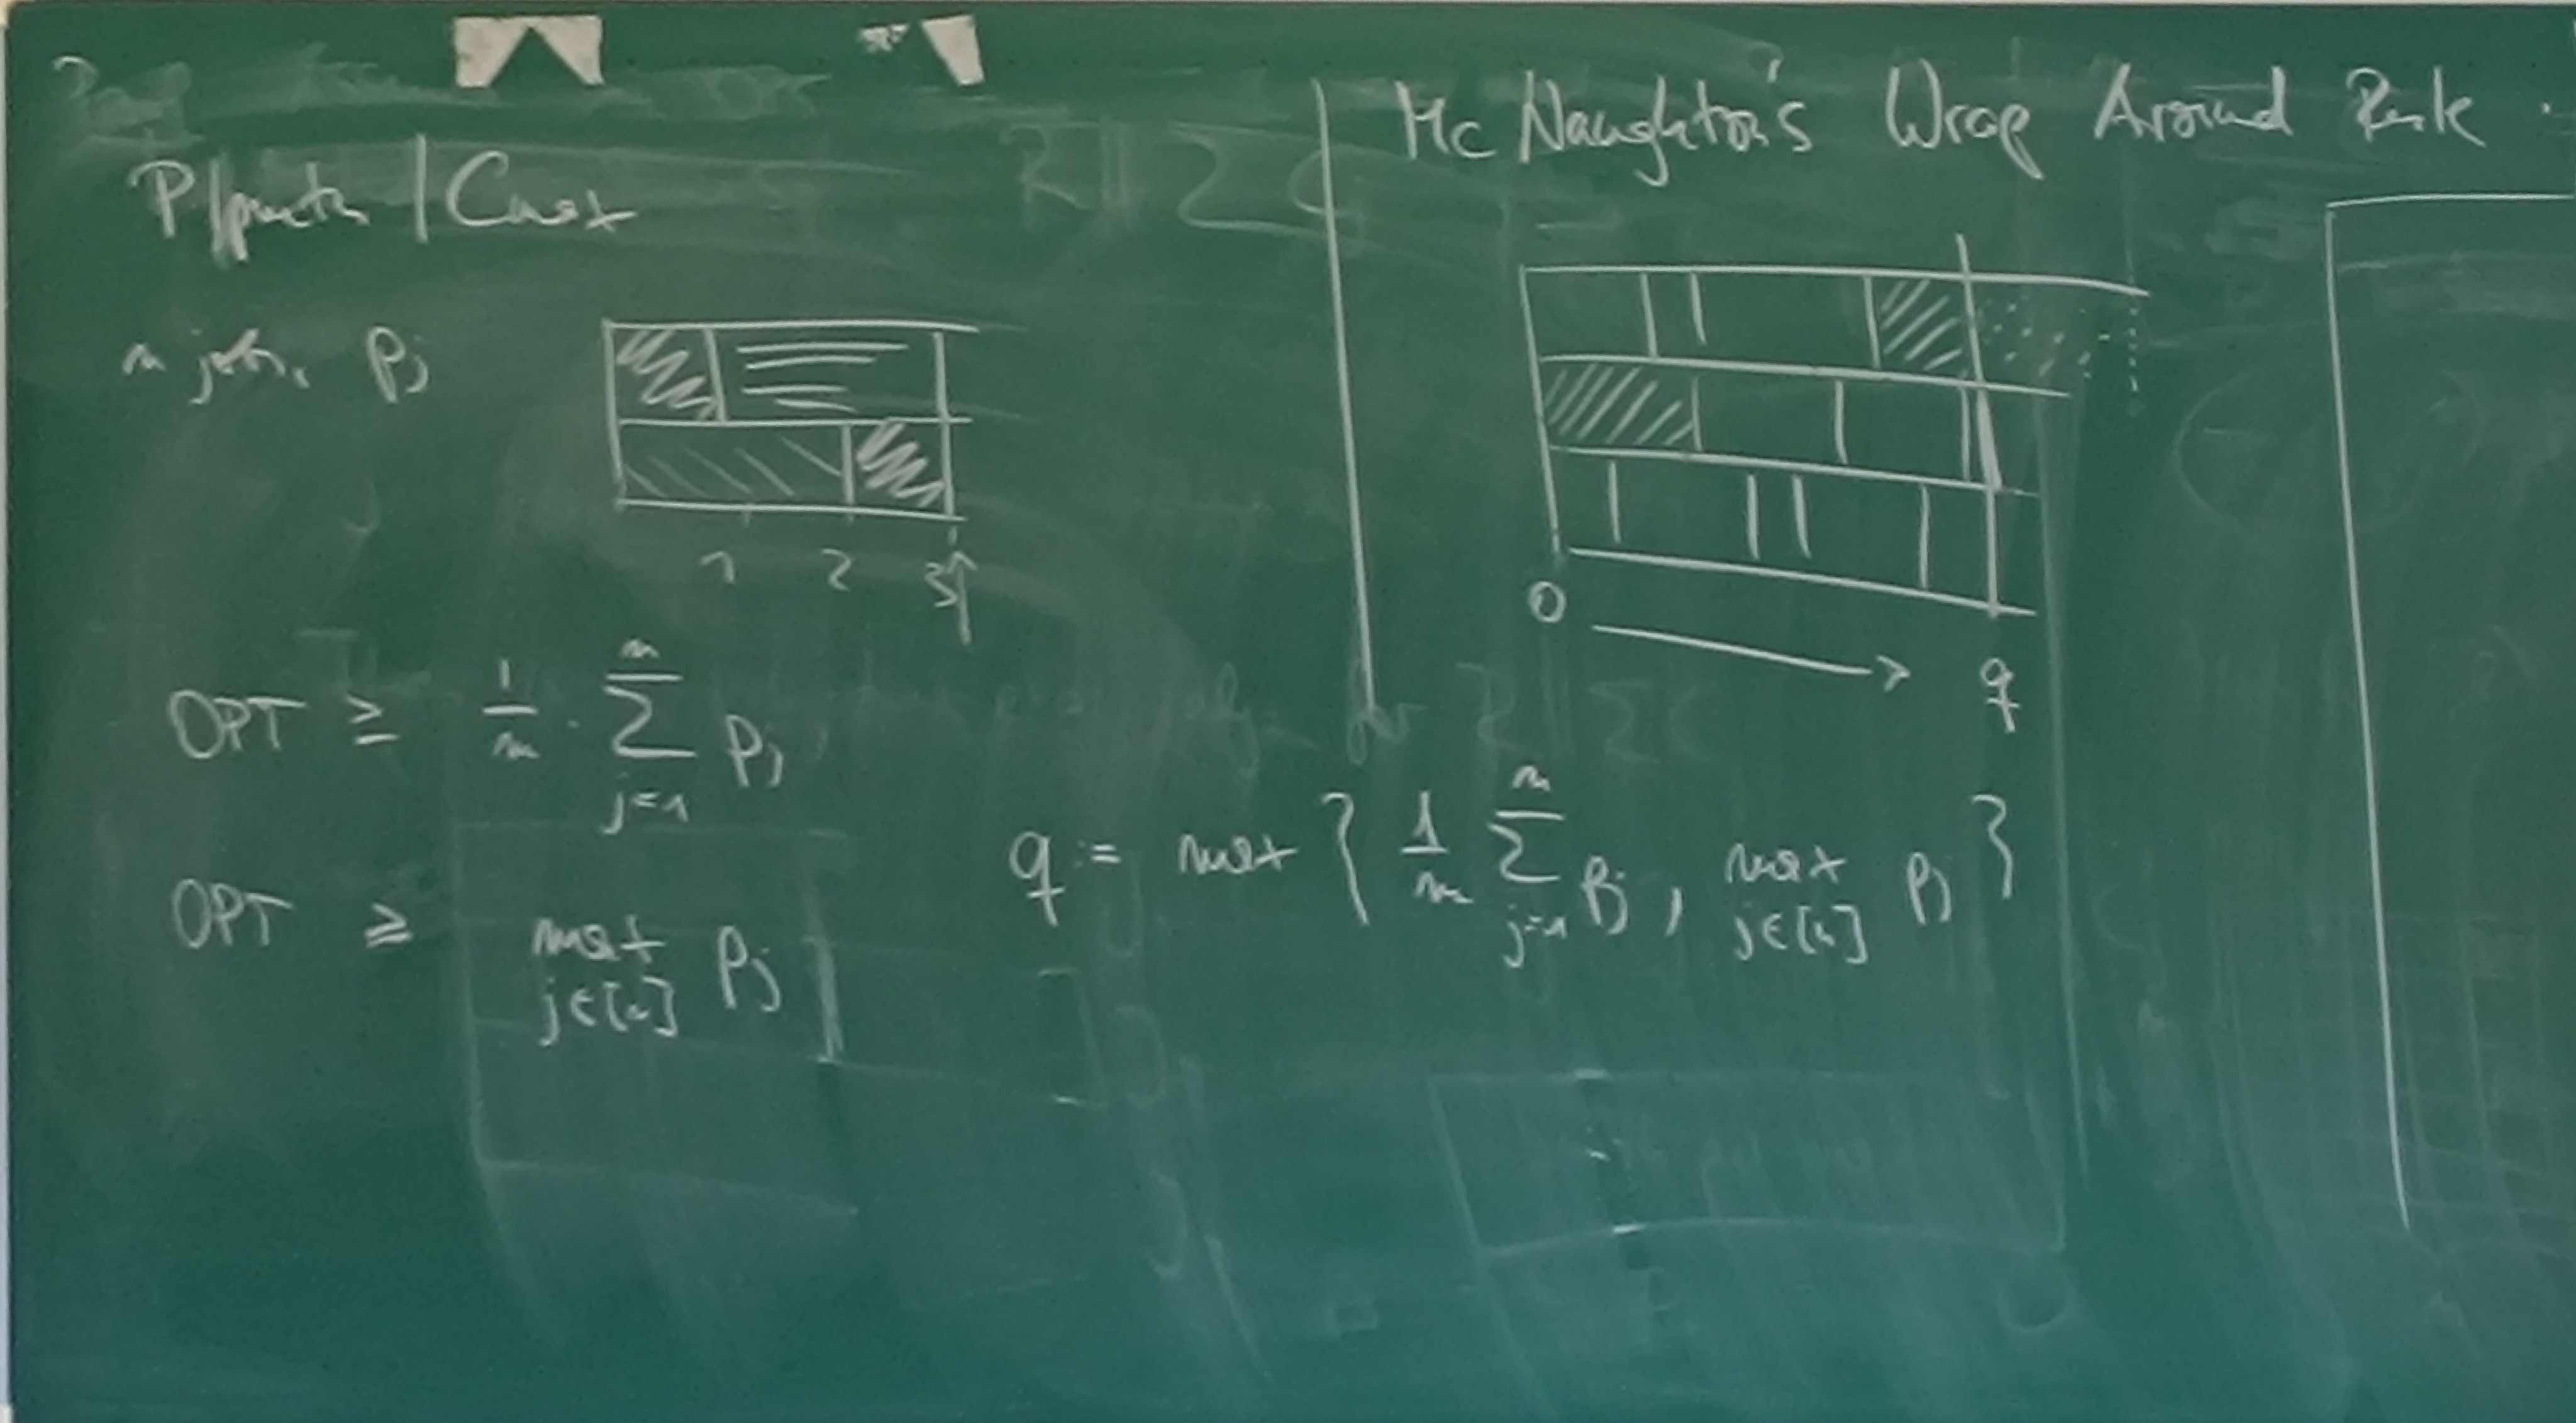 P|pmtn|Cmax
n jobs, pj
1 2 3
OPT ≥ 1/m · ∑_{j=1}^{n} pj
OPT ≥ max_{j∈[n]} pj
Mc Naughton's Wrap Around Rule.
0 → q
q := max { 1/m ∑_{j=1}^{n} pj , max_{j∈[n]} pj }